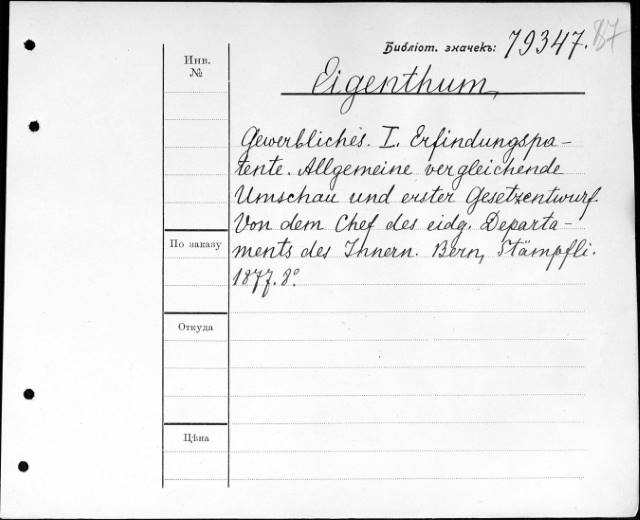 Библіот. значекъ: 79347. 87
Инв.
№
Eigenthum,
Gewerbliches. I. Erfindungspa-
tente. Allgemeine vergleichende
Umschau und erster Gesetzentwurf.
Von dem Chef des eidg. Departa-
ments des Innern. Bern, Stämpfli.
1877. 8°
По заказу
Откуда
Цѣна